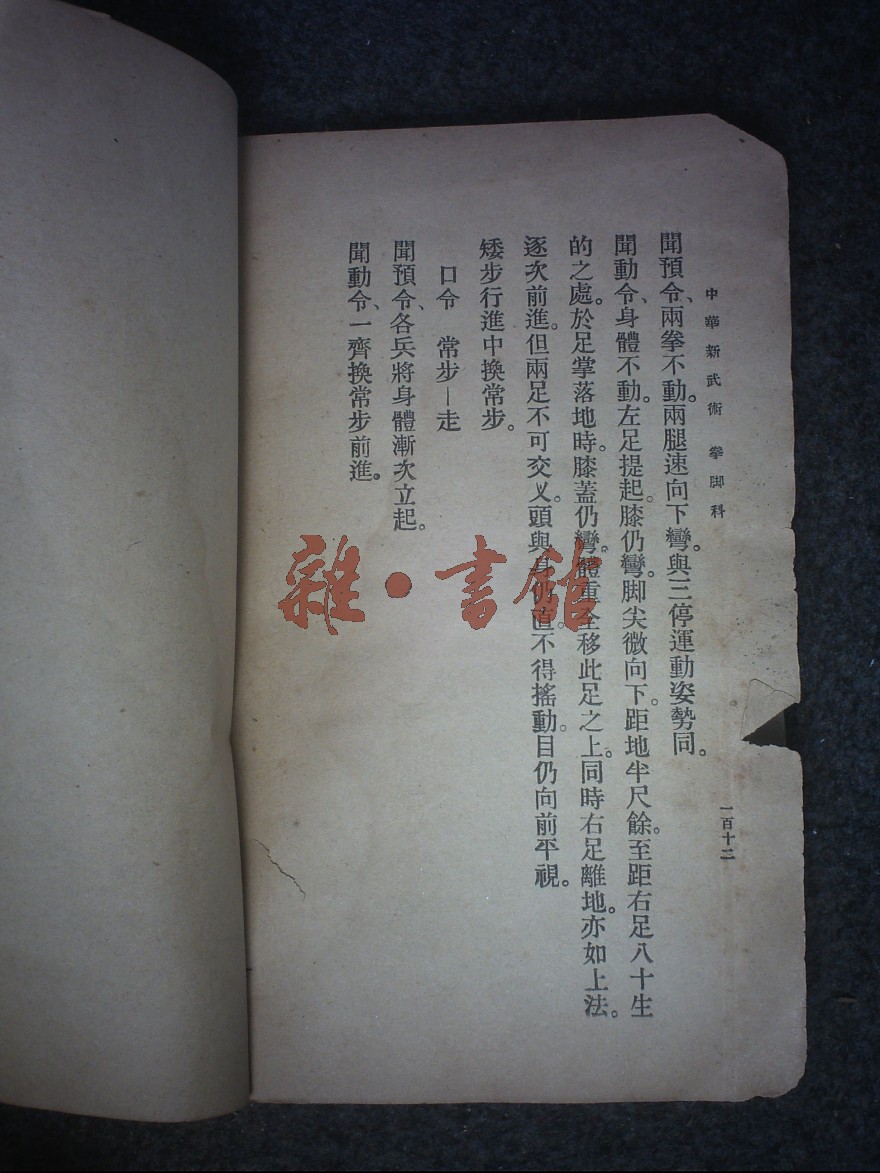 中華新武術 拳脚科
一百十二
聞預令、兩拳不動。兩腿速向下彎。與三停運動姿勢同。
聞動令、身體不動。左足提起。膝仍彎。脚尖微向下。距地半尺餘。至距右足八十生
的之處。於足掌落地時。膝蓋仍彎。體重全移此足之上。同時右足離地。亦如上法。
逐次前進。但兩足不可交叉。頭與身仍直。不得搖動。目仍向前平視。
矮步行進中換常步。
口令 常步—走
聞預令、各兵將身體漸次立起。
聞動令、一齊換常步前進。
雜·書館